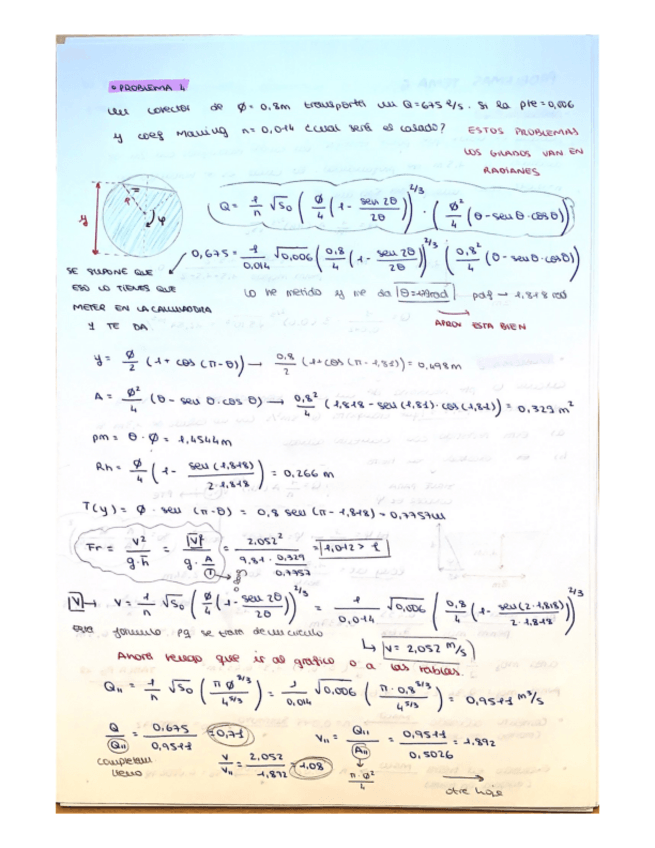 • PROBLEMA 1
Un colector de ø = 0,8m transporta un Q = 675 l/s. Si la pte = 0,006
y coef Manning n = 0,014 ¿cual será el calado?
ESTOS PROBLEMAS
LOS GRADOS VAN EN
RADIANES
Q = 1/n √S₀ (ø/4 (1 - sen 2θ/2θ))^2/3 · (ø²/4 (θ - sen θ · cos θ))
y
φ
0,675 = 1/0,014 √0,006 (0,8/4 (1 - sen 2θ/2θ))^2/3 (0,8²/4 (θ - sen θ · cos θ))
SE SUPONE QUE
ESO LO TIENES QUE
METER EN LA CALCULADORA
Y TE DA
Lo he metido y me da
→ 1,818 rad
ESTA BIEN
y = ø/2 (1 + cos (π - θ)) → 0,8/2 (1 + cos (π - 1,81)) = 0,498 m
A = ø²/4 (θ - sen θ · cos θ) → 0,8²/4 (1,818 - sen (1,81) · cos (1,81)) = 0,329 m²
pm = θ · ø = 1,4544 m
Rh = ø/4 (1 - sen (1,818)/2·1,818) = 0,266 m
T(y) = ø · sen (π - θ) = 0,8 sen (π - 1,818) = 0,7757 m
Fr = v²/g·h = |V|²/g·A/T = 2,052²/9,81·0,329/0,7757 = 1,012 > 1
V → V = 1/n √S₀ (ø/4 (1 - sen 2θ/2θ))^2/3 = 1/0,014 √0,006 (0,8/4 (1 - sen(2·1,818)/2·1,818))^2/3
formula pq se trata de un circulo
↳ v = 2,052 m/s
Ahora tengo que ir al grafico o a las tablas.
Q₁₁ = 1/n √S₀ (π ø^8/3/4^5/3) = 1/0,014 √0,006 (π · 0,8^8/3/4^5/3) = 0,9511 m³/s
Q/Q₁₁ = 0,675/0,9511 = 0,71
V₁₁ = Q₁₁/A₁₁ = 0,9511/0,5026 = 1,892
completam
lleno
V/V₁₁ = 2,052/1,892 = 1,08
π · ø²/4
otra hoja